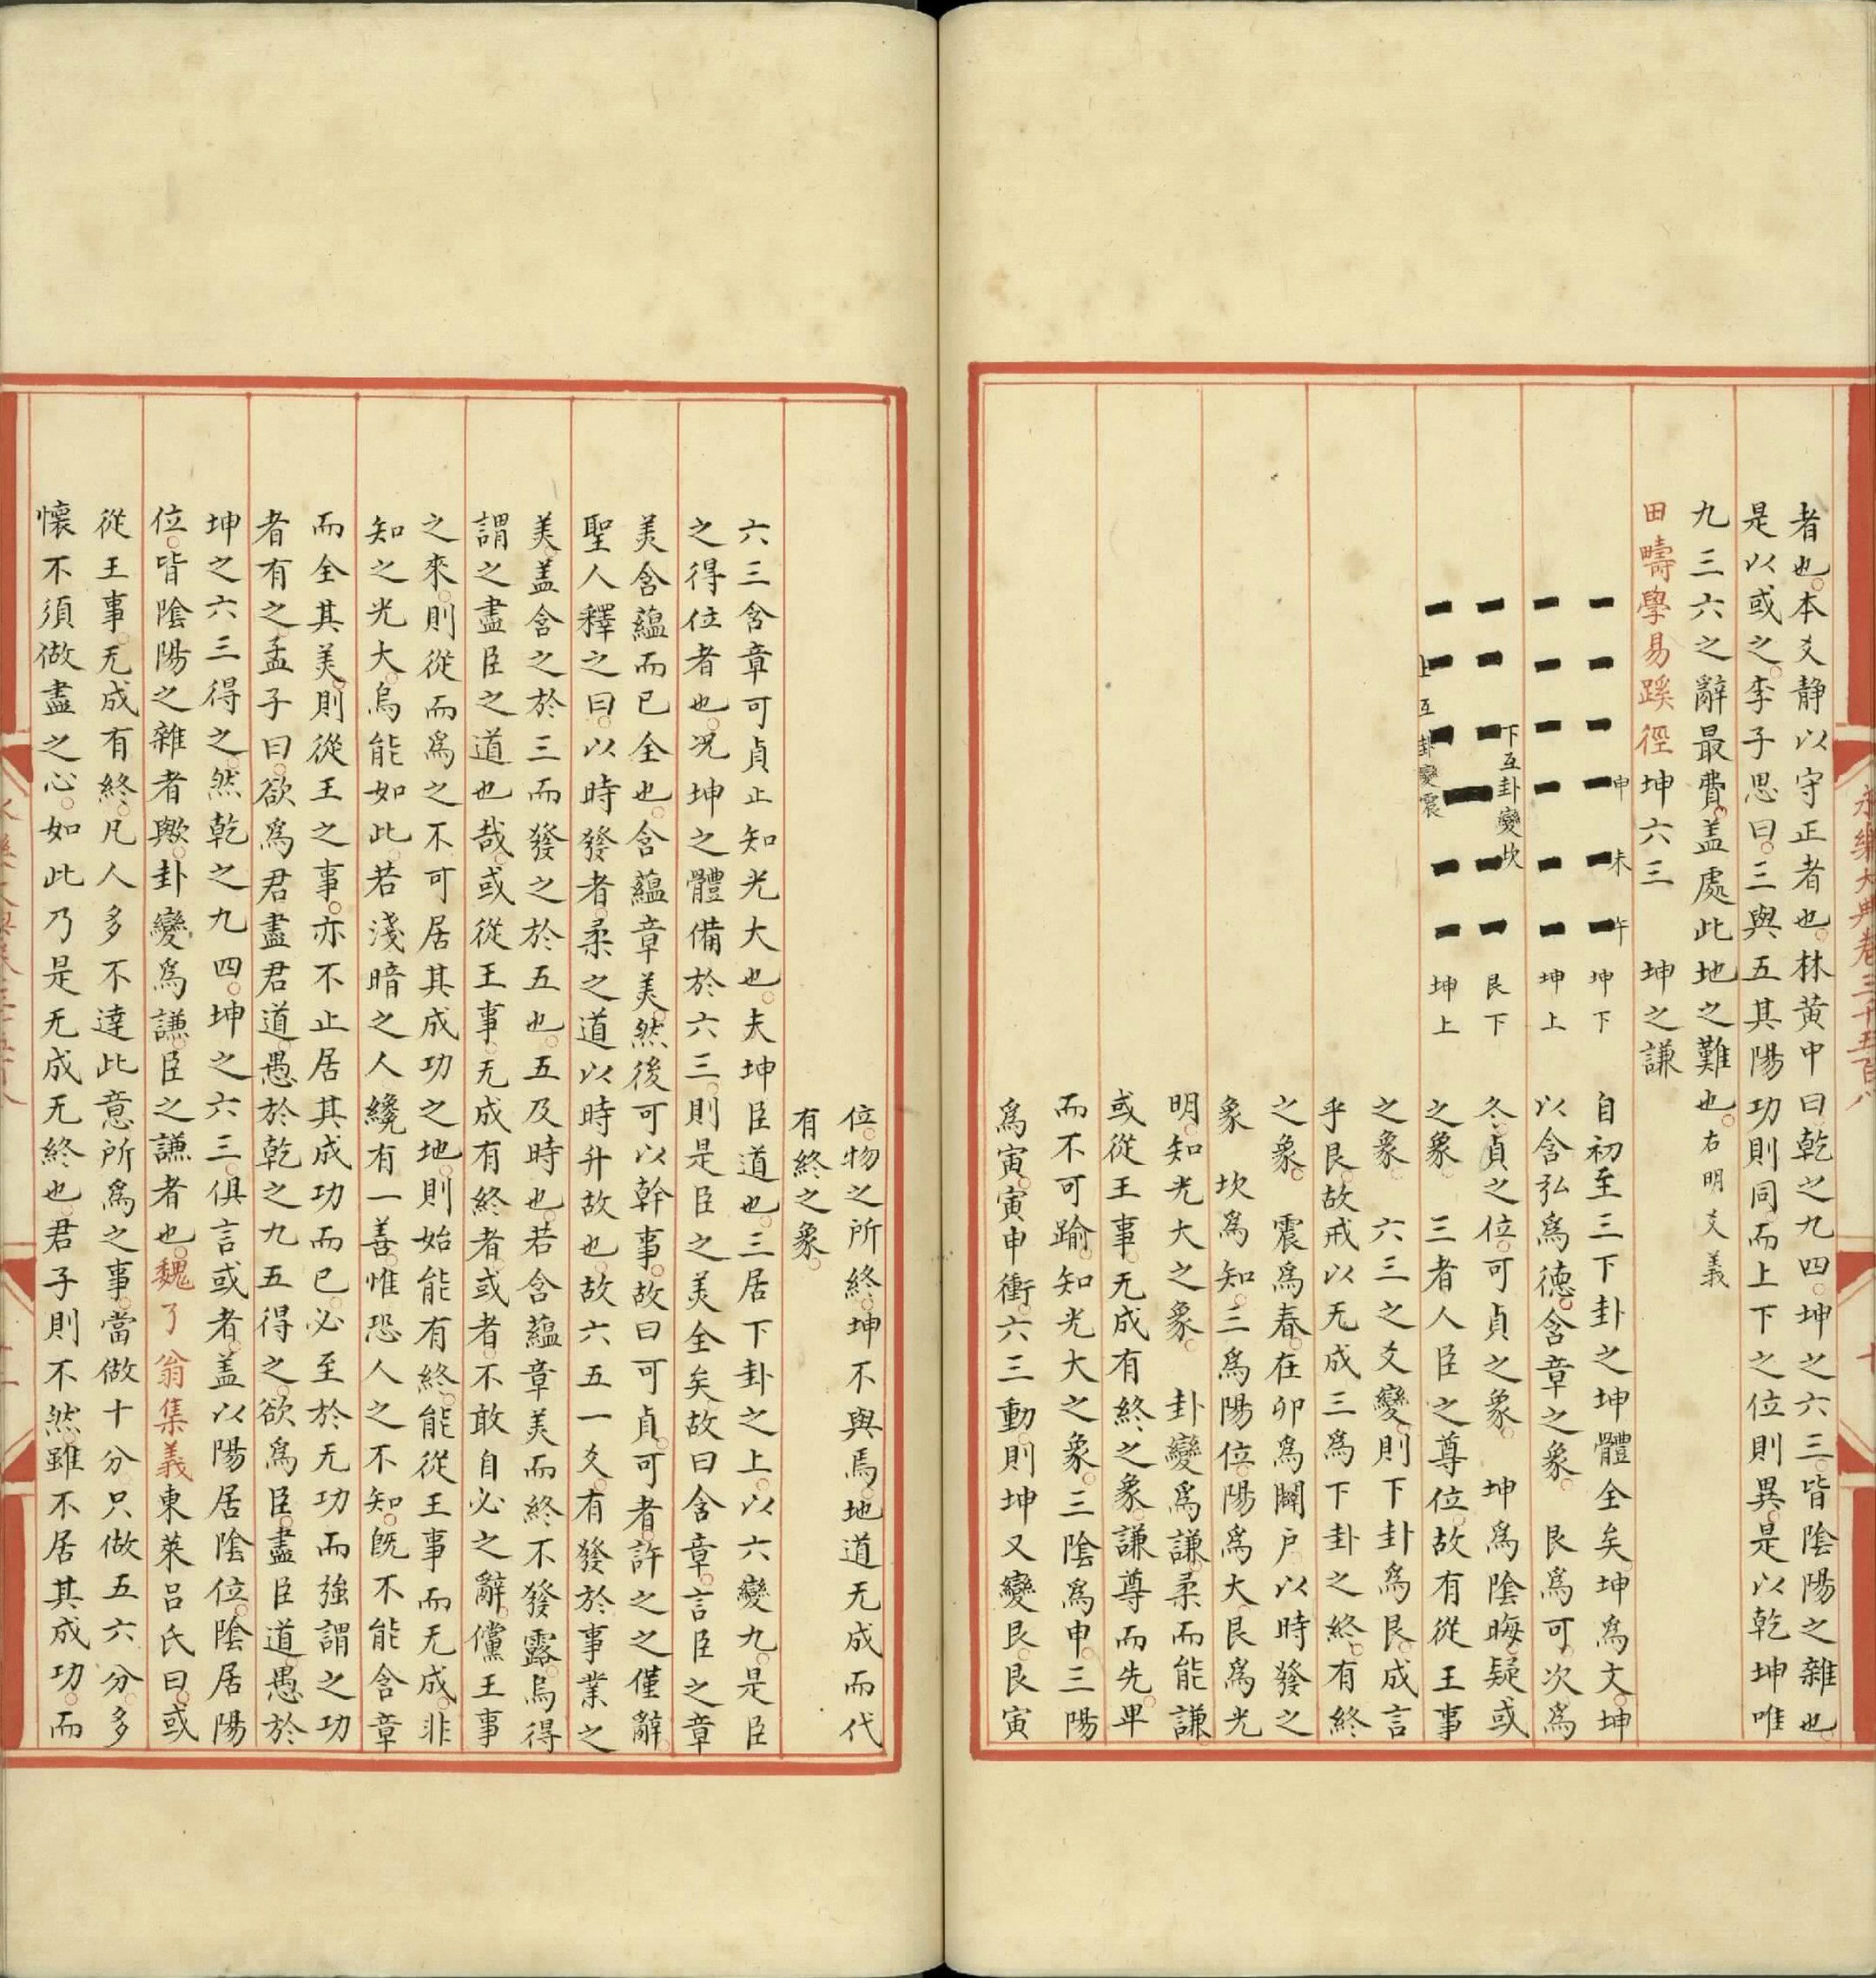 永樂大典卷三千五百八
者也本爻静以守正者也林黄中曰乾之九四坤之六三皆陰陽之雜也
是以或之李子思曰三與五其陽功則同而上下之位則異是以乾坤唯
九三六之辭最費盖處此地之難也右明爻義
田疇學易蹊徑坤六三　坤之謙
申　未　午
坤下
坤上
下互卦變坎
艮下
上互卦變震
坤上
自初至三下卦之坤體全矣坤爲文坤
以含弘爲德含章之象　艮爲可次爲
冬貞之位可貞之象　坤爲陰晦疑或
之象　三者人臣之尊位故有從王事
之象　六三之爻變則下卦爲艮成言
乎艮故戒以无成三爲下卦之終有終
之象　震爲春在卯爲闢户以時發之
象　坎爲知三爲陽位陽爲大艮爲光
明知光大之象　卦變爲謙柔而能謙
或從王事无成有終之象謙尊而先卑
而不可踰知光大之象三陰爲申三陽
爲寅寅申衝六三動則坤又變艮艮寅
位物之所終坤不與焉地道无成而代
有終之象
六三含章可貞止知光大也夫坤臣道也三居下卦之上以六變九是臣
之得位者也况坤之體備於六三則是臣之美全矣故曰含章言臣之章
美含蘊而已全也含蘊章美然後可以幹事故曰可貞可者許之之僅辭
聖人釋之曰以時發者柔之道以時升故也故六五一爻有發於事業之
美盖含之於三而發之於五也五及時也若含蘊章美而終不發露烏得
謂之盡臣之道也哉或從王事无成有終者或者不敢自必之辭儻王事
之來則從而爲之不可居其成功之地則始能有終能從王事而无成非
知之光大烏能如此若淺暗之人纔有一善惟恐人之不知既不能含章
而全其美則從王之事亦不止居其成功而已必至於无功而強謂之功
者有之孟子曰欲爲君盡君道愚於乾之九五得之欲爲臣盡臣道愚於
坤之六三得之然乾之九四坤之六三俱言或者盖以陽居陰位陰居陽
位皆陰陽之雜者歟卦變爲謙臣之謙者也魏了翁集義東萊吕氏曰或
從王事无成有終凡人多不達此意所爲之事當做十分只做五六分多
懷不須做盡之心如此乃是无成无終也君子則不然雖不居其成功而